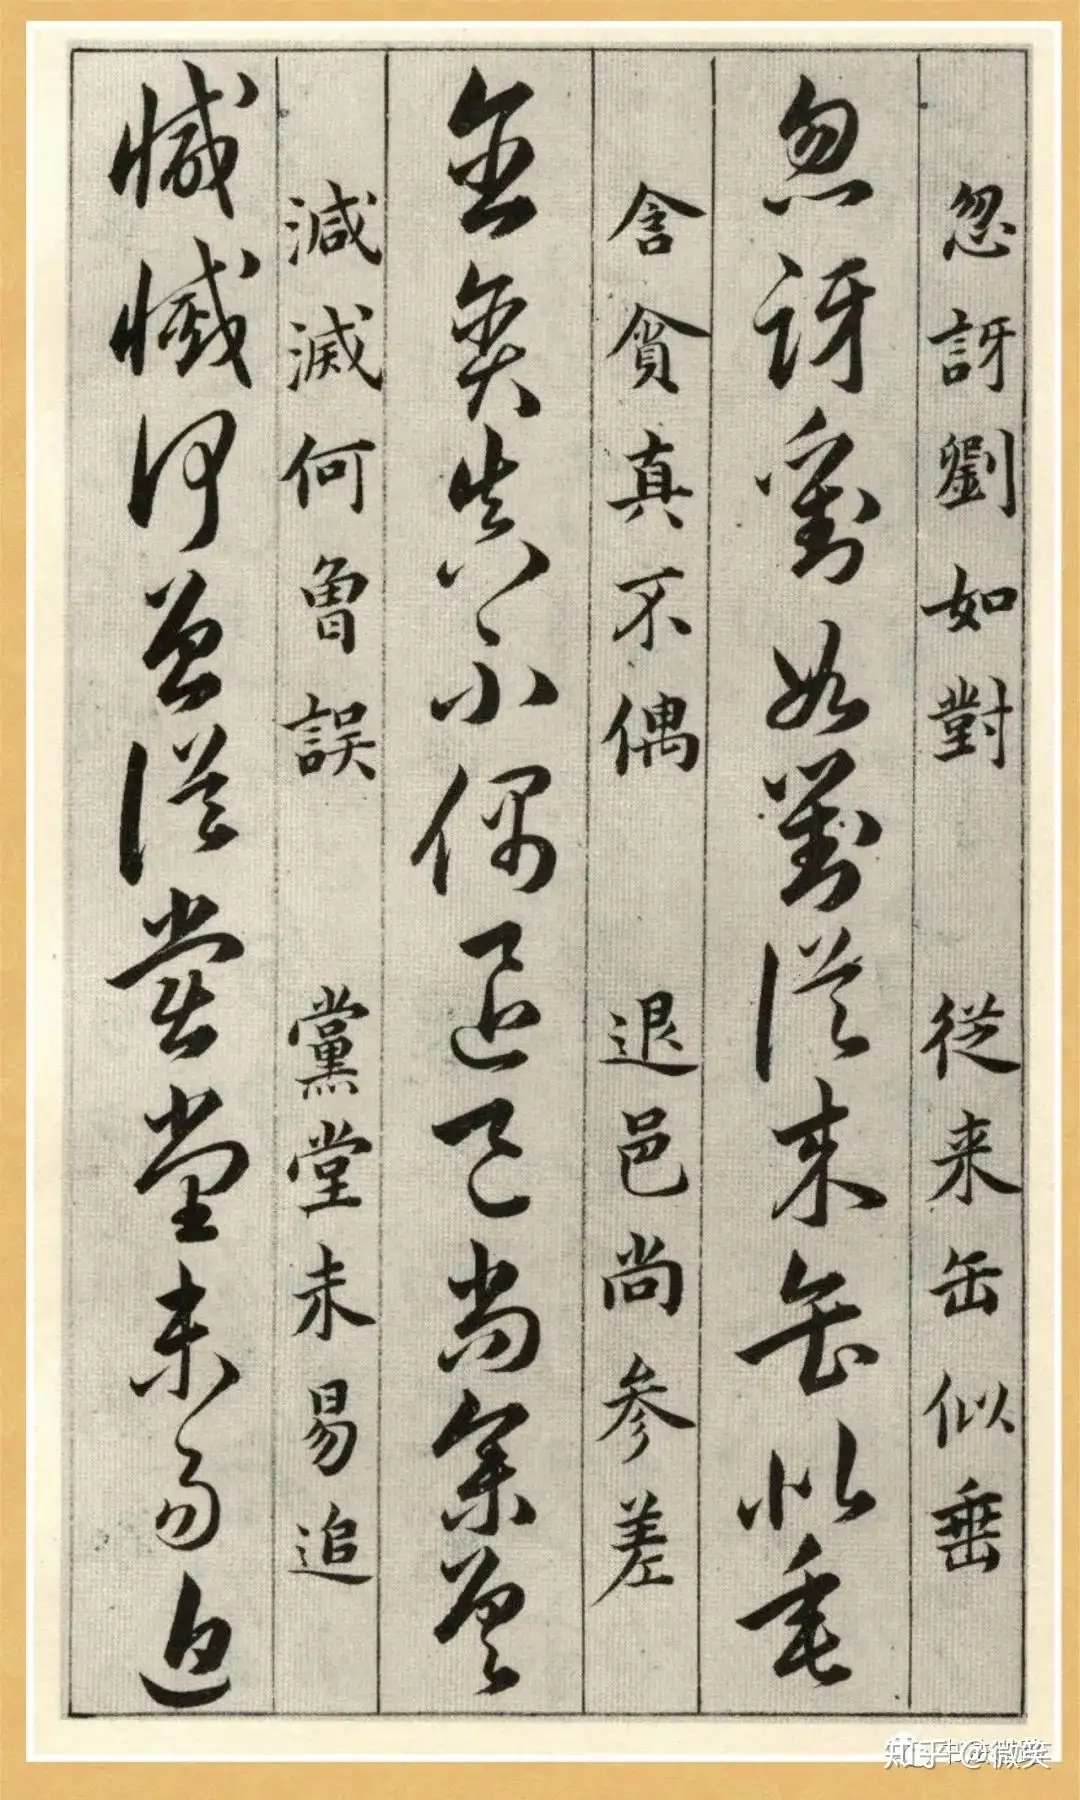 忽訝劉如對 從来缶似垂
忽訝劉如對從来缶似垂
含貪真不偶 退邑尚参差
含貪真不偶退邑尚参差
減滅何曾誤 黨堂未易追
減滅何曾誤黨堂未易追
知乎 @微笑